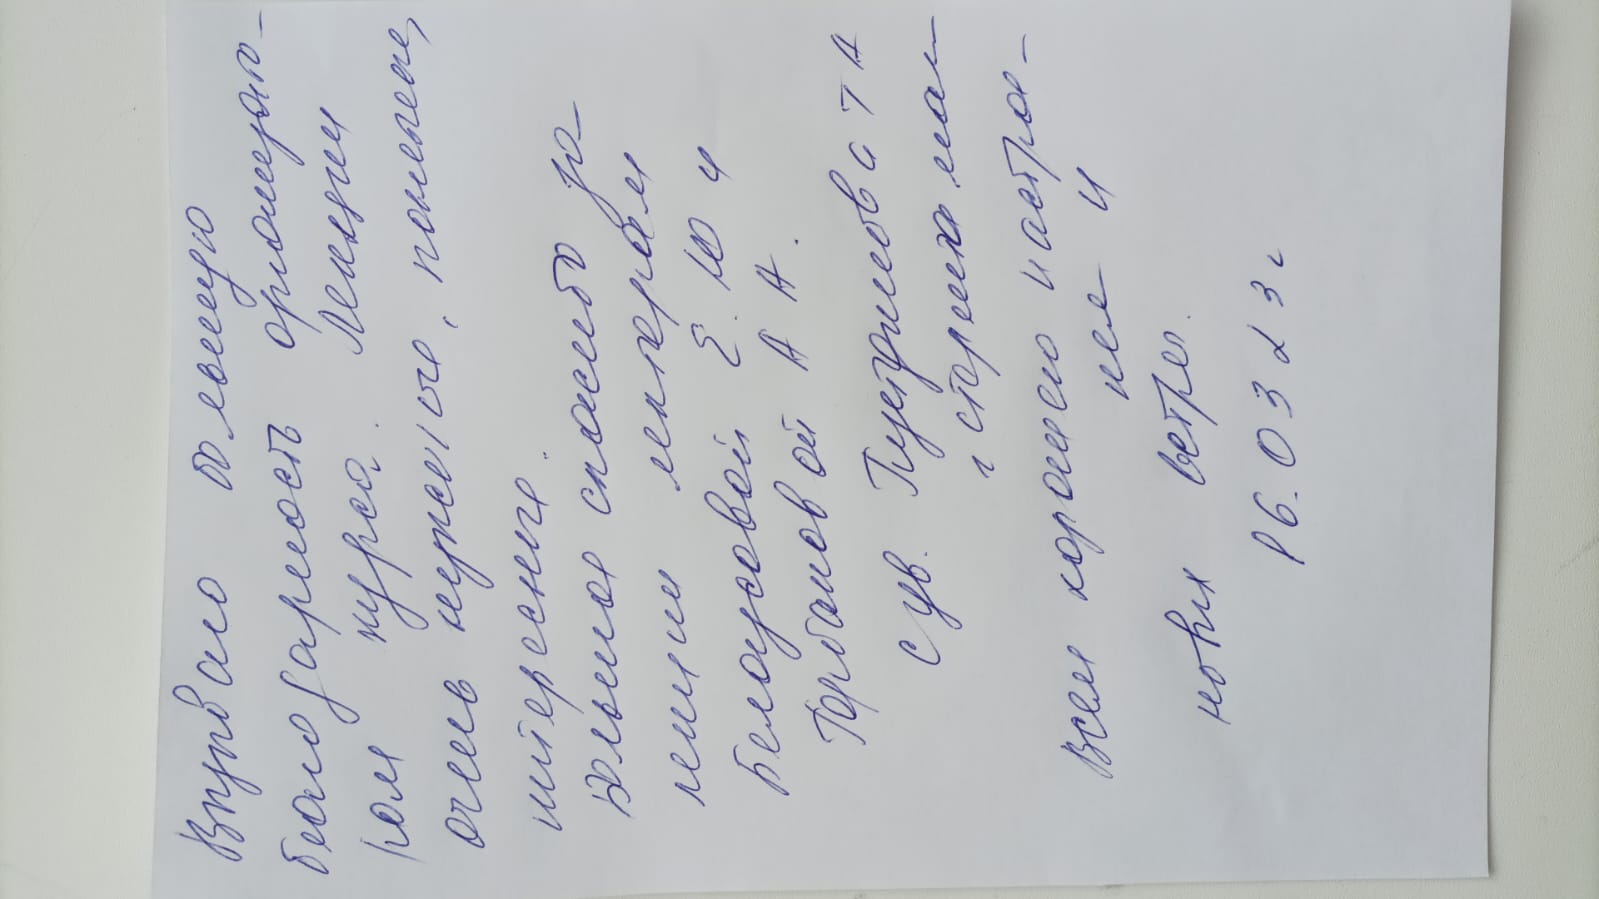 Выражаю большую
благодарность организато-
рам курса. Лекции
очень нужные, полезные,
интересные.
Большое спасибо за-
лекторам
Белоусовой Е. Ю и
Горбановой А А.
С ув. Т А
г
Всем хорошего настрое-
ния и
новых встреч.
16.03 23г